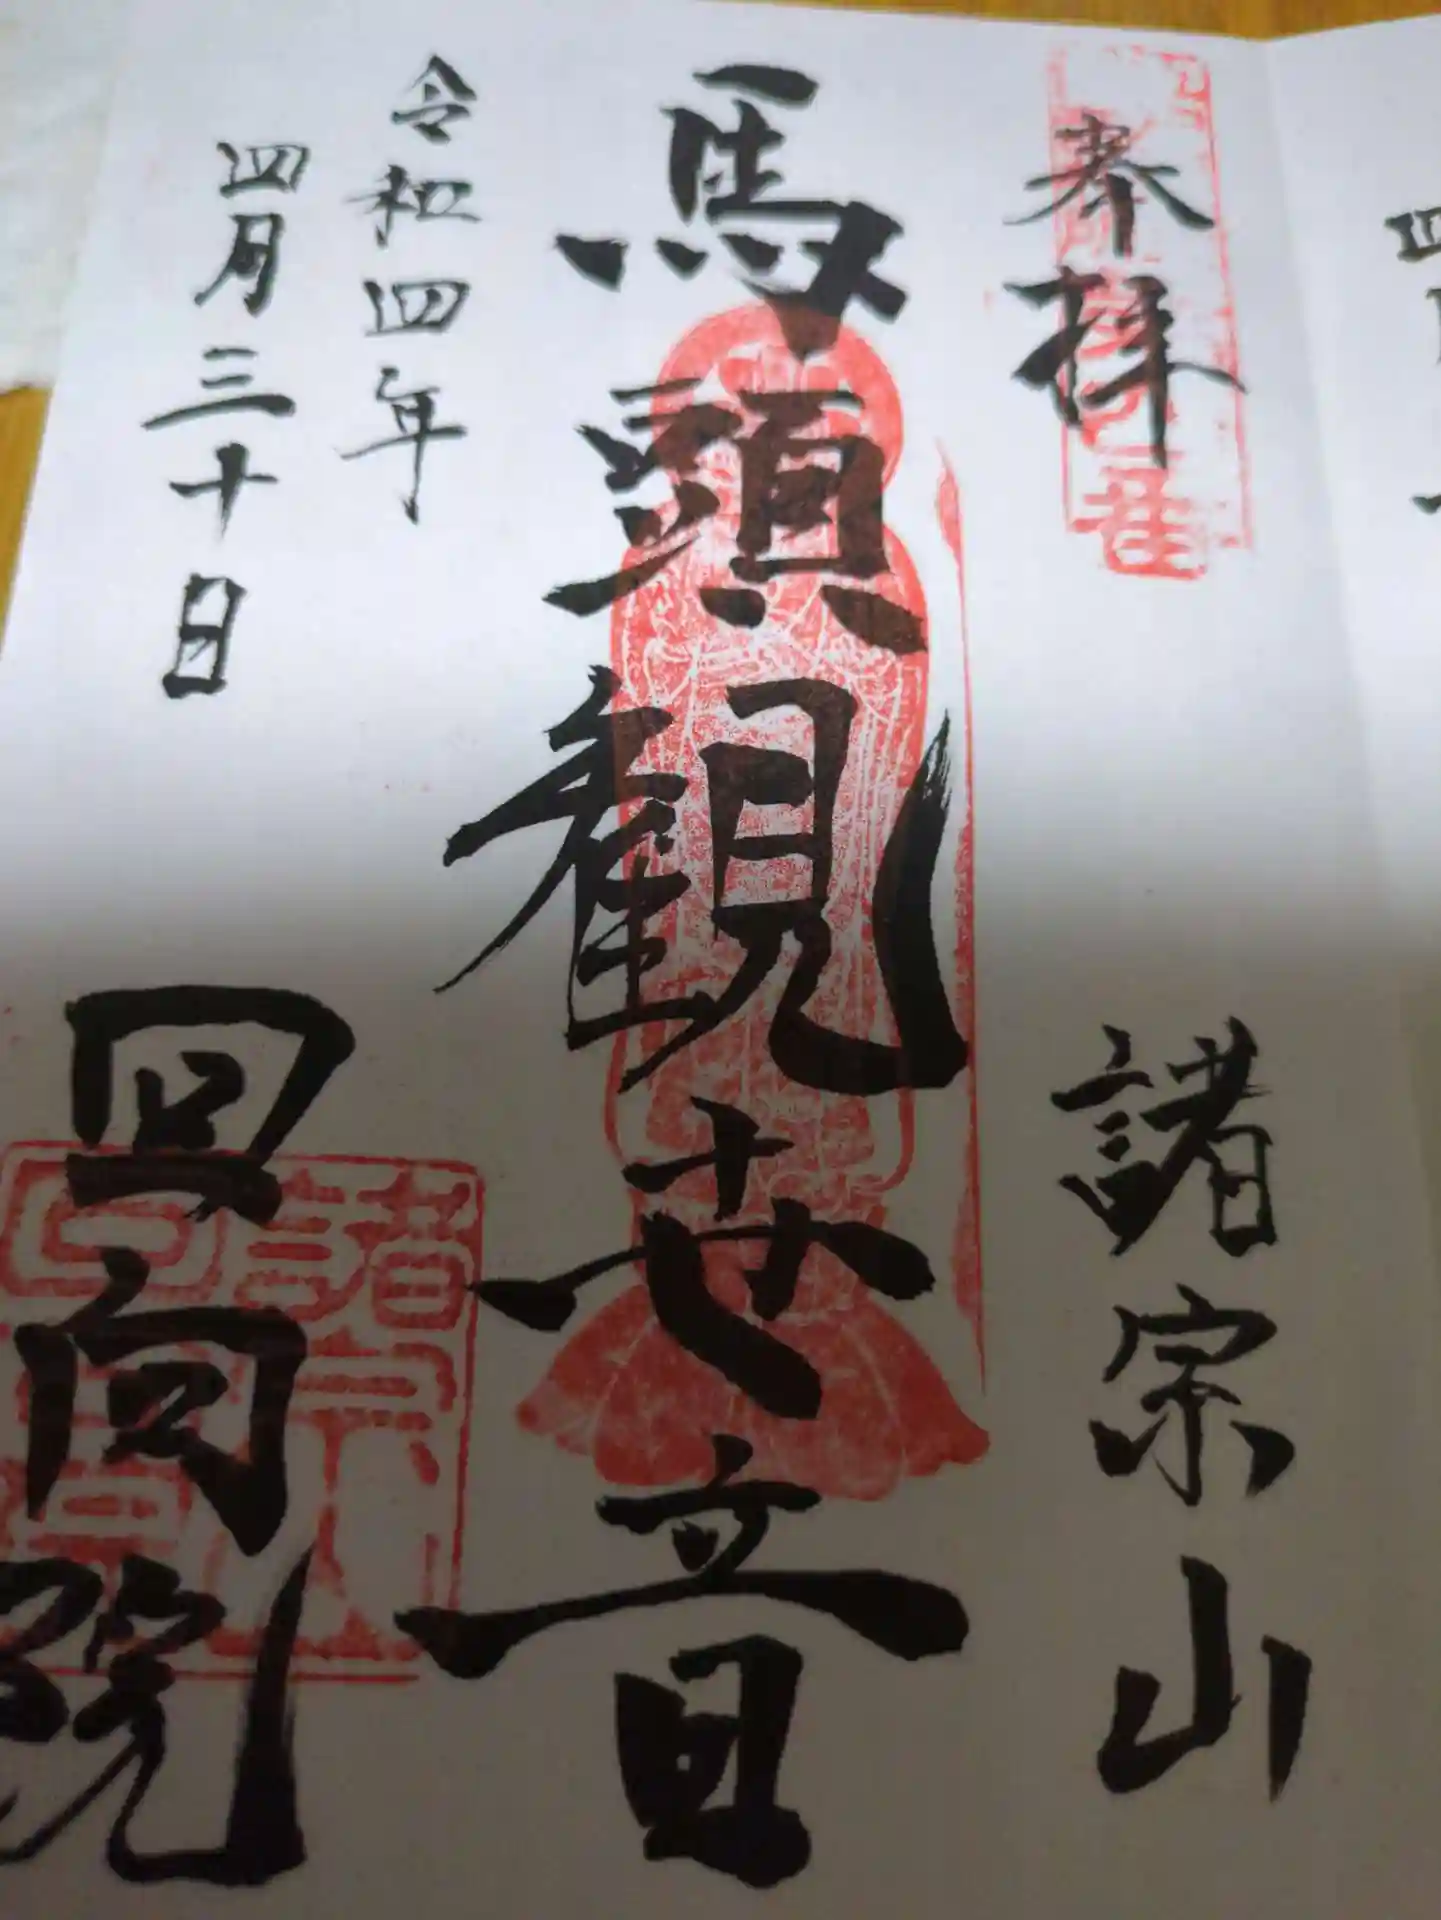 奉拝
諸宗山
馬頭観世音
令和四年
四月三十日
回向院